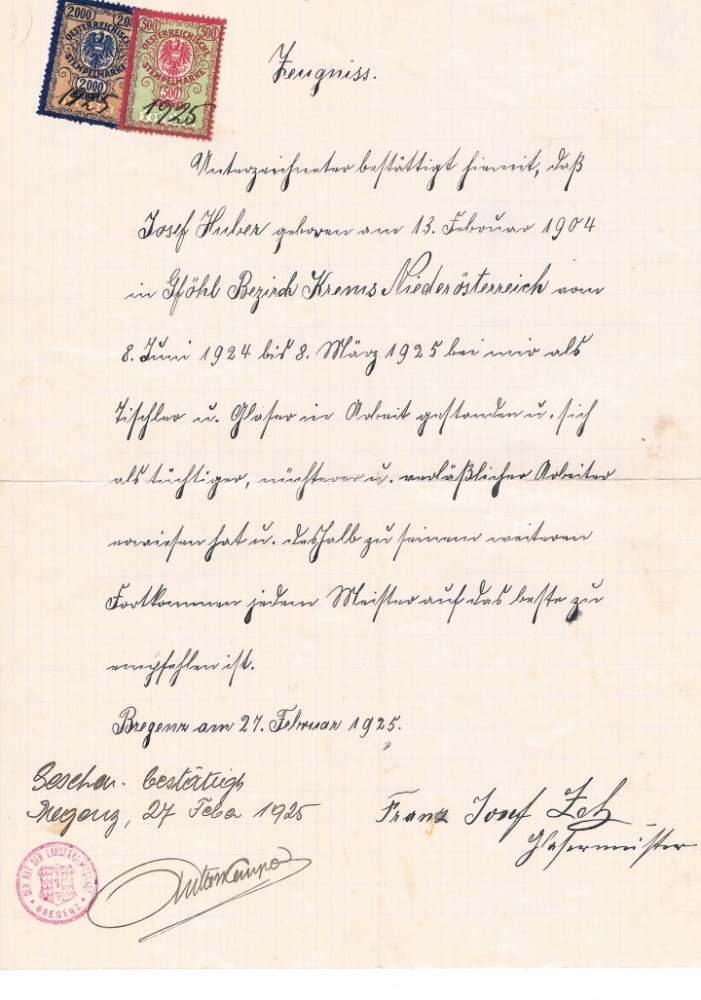 2.000
OESTERREICHISCHE
STEMPELMARKE
2000
1925
500 500
OESTERREICHISCHE
STEMPELMARKE
500
1925
Zeugniss.
Unterzeichneter bestättigt hiemit, daß
Josef Huber geboren am 13. Februar 1904
in Gföhl Bezirck Krems Niederösterreich vom
8. Juni 1924 bis 8. März 1925 bei mir als
Tischler u. Glaser in Arbeit gestanden u. sich
als tüchtiger, nüchterer u. verläßlicher Arbeiter
erwiesen hat u. deshalb zu seinem weiteren
Fortkommen jedem Meister auf das beste zu
empfehlen ist.
Bregenz am 27. Februar 1925.
bestätigt
Bregenz, 27 Feber 1925
Franz Josef
Glasermeister
DER RAT DER LANDESHAUPTSTADT
BREGENZ